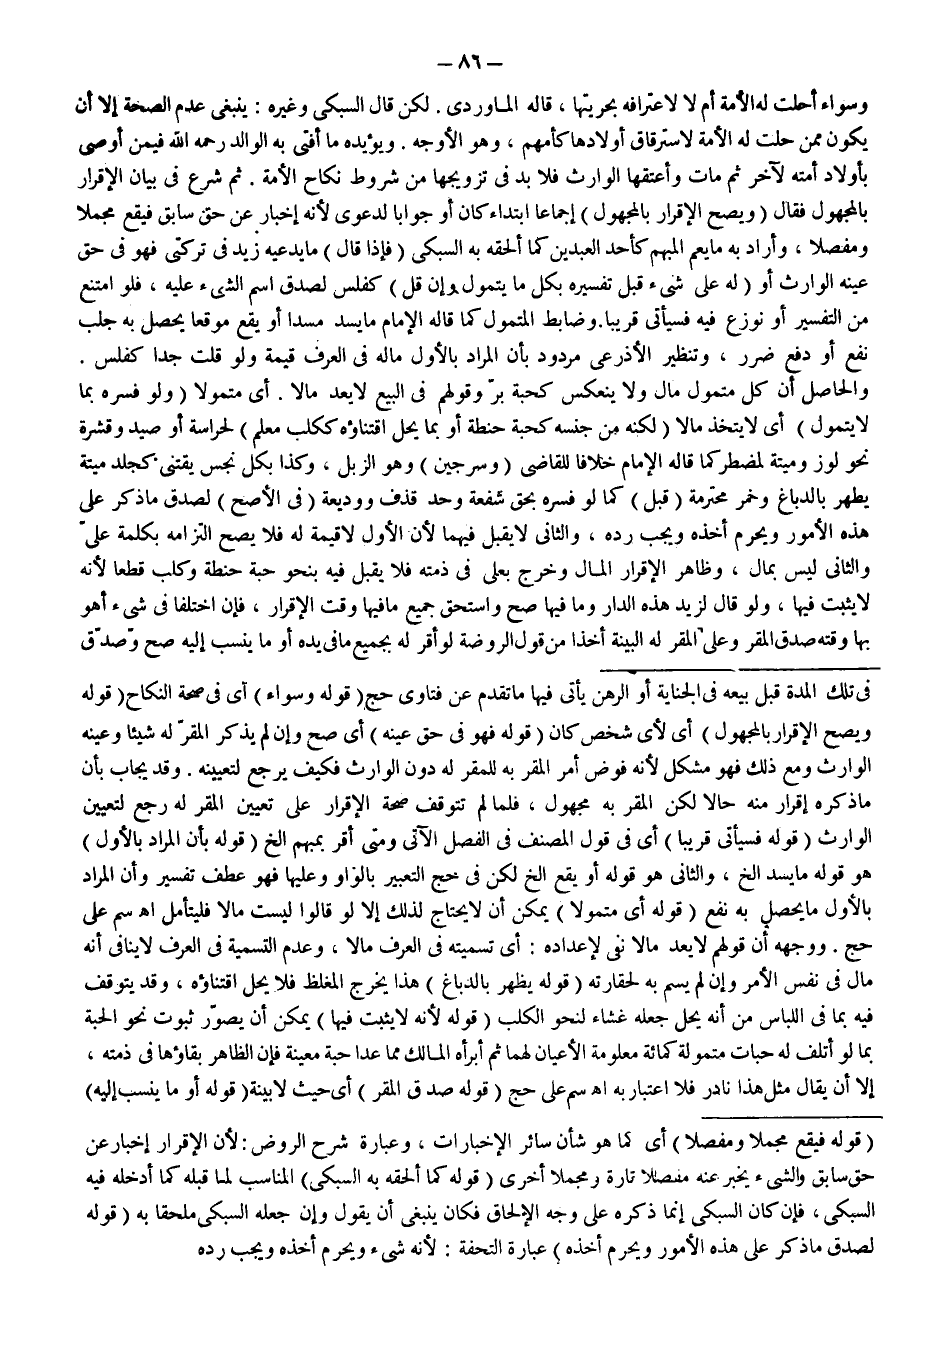 — ٨٦ —
وسواء أحلت له الأمة أم لا لاعترافه بحريتها ، قاله الماوردى . لكن قال السبكى وغيره : ينبغى عدم الصحة إلا أن
يكون ممن حلت له الأمة لاسترقاق أولادها كأمهم ، وهو الأوجه . ويؤيده ما أفتى به الوالد رحمه الله فيمن أوصى
بأولاد أمته لآخر ثم مات وأعتقها الوارث فلا بد فى تزويجها من شروط نكاح الأمة . ثم شرع فى بيان الإقرار
بالمجهول فقال ( ويصح الإقرار بالمجهول ) إجماعا ابتداء كان أو جوابا لدعوى لأنه إخبار عن حق سابق فيقع مجملا
ومفصلا ، وأراد به مايعم المبهم كأحد العبدين كما ألحقه به السبكى ( فإذا قال ) مايدعيه زيد فى تركتى فهو فى حق
عينه الوارث أو ( له على شىء قبل تفسيره بكل ما يتمول وإن قل ) كفلس لصدق اسم الشىء عليه ، فلو امتنع
من التفسير أو نوزع فيه فسيأتى قريبا . وضابط المتمول كما قاله الإمام مايسد مسدا أو يقع موقعا يحصل به جلب
نفع أو دفع ضرر ، وتنظير الأذرعى مردود بأن المراد بالأول ماله فى العرف قيمة ولو قلت جدا كفلس .
والحاصل أن كل متمول مال ولا ينعكس كحبة برّ وقولهم فى البيع لايعد مالا . أى متمولا ( ولو فسره بما
لايتمول ) أى لايتخذ مالا ( لكنه من جنسه كحبة حنطة أو بما يحل اقتناؤه ككلب معلم ) لحراسة أو صيد وقشرة
نحو لوز وميتة لمضطر كما قاله الإمام خلافا للقاضى ( وسرجين ) وهو الزبل ، وكذا بكل نجس يقتنى كجلد ميتة
يطهر بالدباغ وخمر محترمة ( قبل ) كما لو فسره بحق شفعة وحد قذف ووديعة ( فى الأصح ) لصدق ماذكر على
هذه الأمور ويحرم أخذه ويجب رده ، والثانى لايقبل فيهما لأن الأول لاقيمة له فلا يصح التزامه بكلمة علىّ
والثانى ليس بمال ، وظاهر الإقرار المال وخرج بعلى فى ذمته فلا يقبل فيه بنحو حبة حنطة وكلب قطعا لأنه
لايثبت فيها ، ولو قال لزيد هذه الدار وما فيها صح واستحق جميع مافيها وقت الإقرار ، فإن اختلفا فى شىء أهو
بها وقته صدق المقر وعلى المقر له البينة أخذا من قول الروضة لو أقر له بجميع مافى يده أو ما ينسب إليه صح وصدّق
فى تلك المدة قبل بيعه فى الجناية أو الرهن يأتى فيها ماتقدم عن فتاوى حج ( قوله وسواء ) أى فى صحة النكاح ( قوله
ويصح الإقرار بالمجهول ) أى لأى شخص كان ( قوله فهو فى حق عينه ) أى صح وإن لم يذكر المقرّ له شيئا وعينه
الوارث ومع ذلك فهو مشكل لأنه فوض أمر المقر به للمقر له دون الوارث فكيف يرجع لتعيينه . وقد يجاب بأن
ماذكره إقرار منه حالا لكن المقر به مجهول ، فلما لم تتوقف صحة الإقرار على تعيين المقر له رجع لتعيين
الوارث ( قوله فسيأتى قريبا ) أى فى قول المصنف فى الفصل الآتى ومتى أقر بمبهم الخ ( قوله بأن المراد بالأول )
هو قوله مايسد الخ ، والثانى هو قوله أو يقع الخ لكن فى حج التعبير بالواو وعليها فهو عطف تفسير وأن المراد
بالأول مايحصل به نفع ( قوله أى متمولا ) يمكن أن لايحتاج لذلك إلا لو قالوا ليست مالا فليتأمل اه سم على
حج . ووجهه أن قولهم لايعد مالا نفى لإعداده : أى تسميته فى العرف مالا ، وعدم التسمية فى العرف لاينافى أنه
مال فى نفس الأمر وإن لم يسم به لحقارته ( قوله يظهر بالدباغ ) هذا يخرج المغلظ فلا يحل اقتناؤه ، وقد يتوقف
فيه بما فى اللباس من أنه يحل جعله غشاء لنحو الكلب ( قوله لأنه لايثبت فيها ) يمكن أن يصوّر ثبوت نحو الحبة
بما لو أتلف له حبات متمولة كمائة معلومة الأعيان لهما ثم أبرأه المالك مما عدا حبة معينة فإن الظاهر بقاؤها فى ذمته ،
إلا أن يقال مثل هذا نادر فلا اعتبار به اه سم على حج ( قوله صدق المقر ) أى حيث لابينة ( قوله أو ما ينسب إليه )
( قوله فيقع مجملا ومفصلا ) أى كما هو شأن سائر الإخبارات ، وعبارة شرح الروض : لأن الإقرار إخبار عن
حق سابق والشىء يخبر عنه مفصلا تارة ومجملا أخرى ( قوله كما ألحقه به السبكى ) المناسب لما قبله كما أدخله فيه
السبكى ، فإن كان السبكى إنما ذكره على وجه الإلحاق فكان ينبغى أن يقول وإن جعله السبكى ملحقا به ( قوله
لصدق ماذكر على هذه الأمور ويحرم أخذه ) عبارة التحفة : لأنه شىء ويحرم أخذه ويجب رده